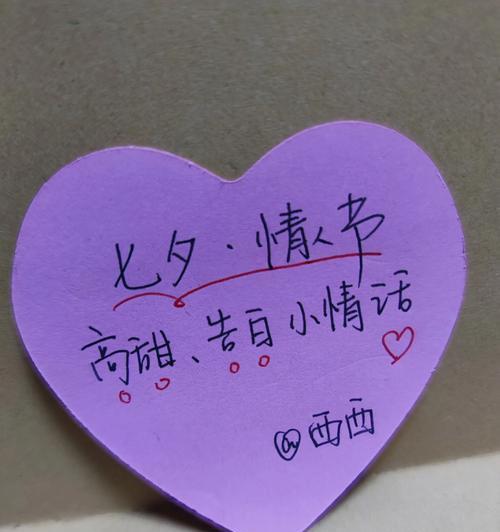 七夕·情人节
高甜、告白小情话
@西西